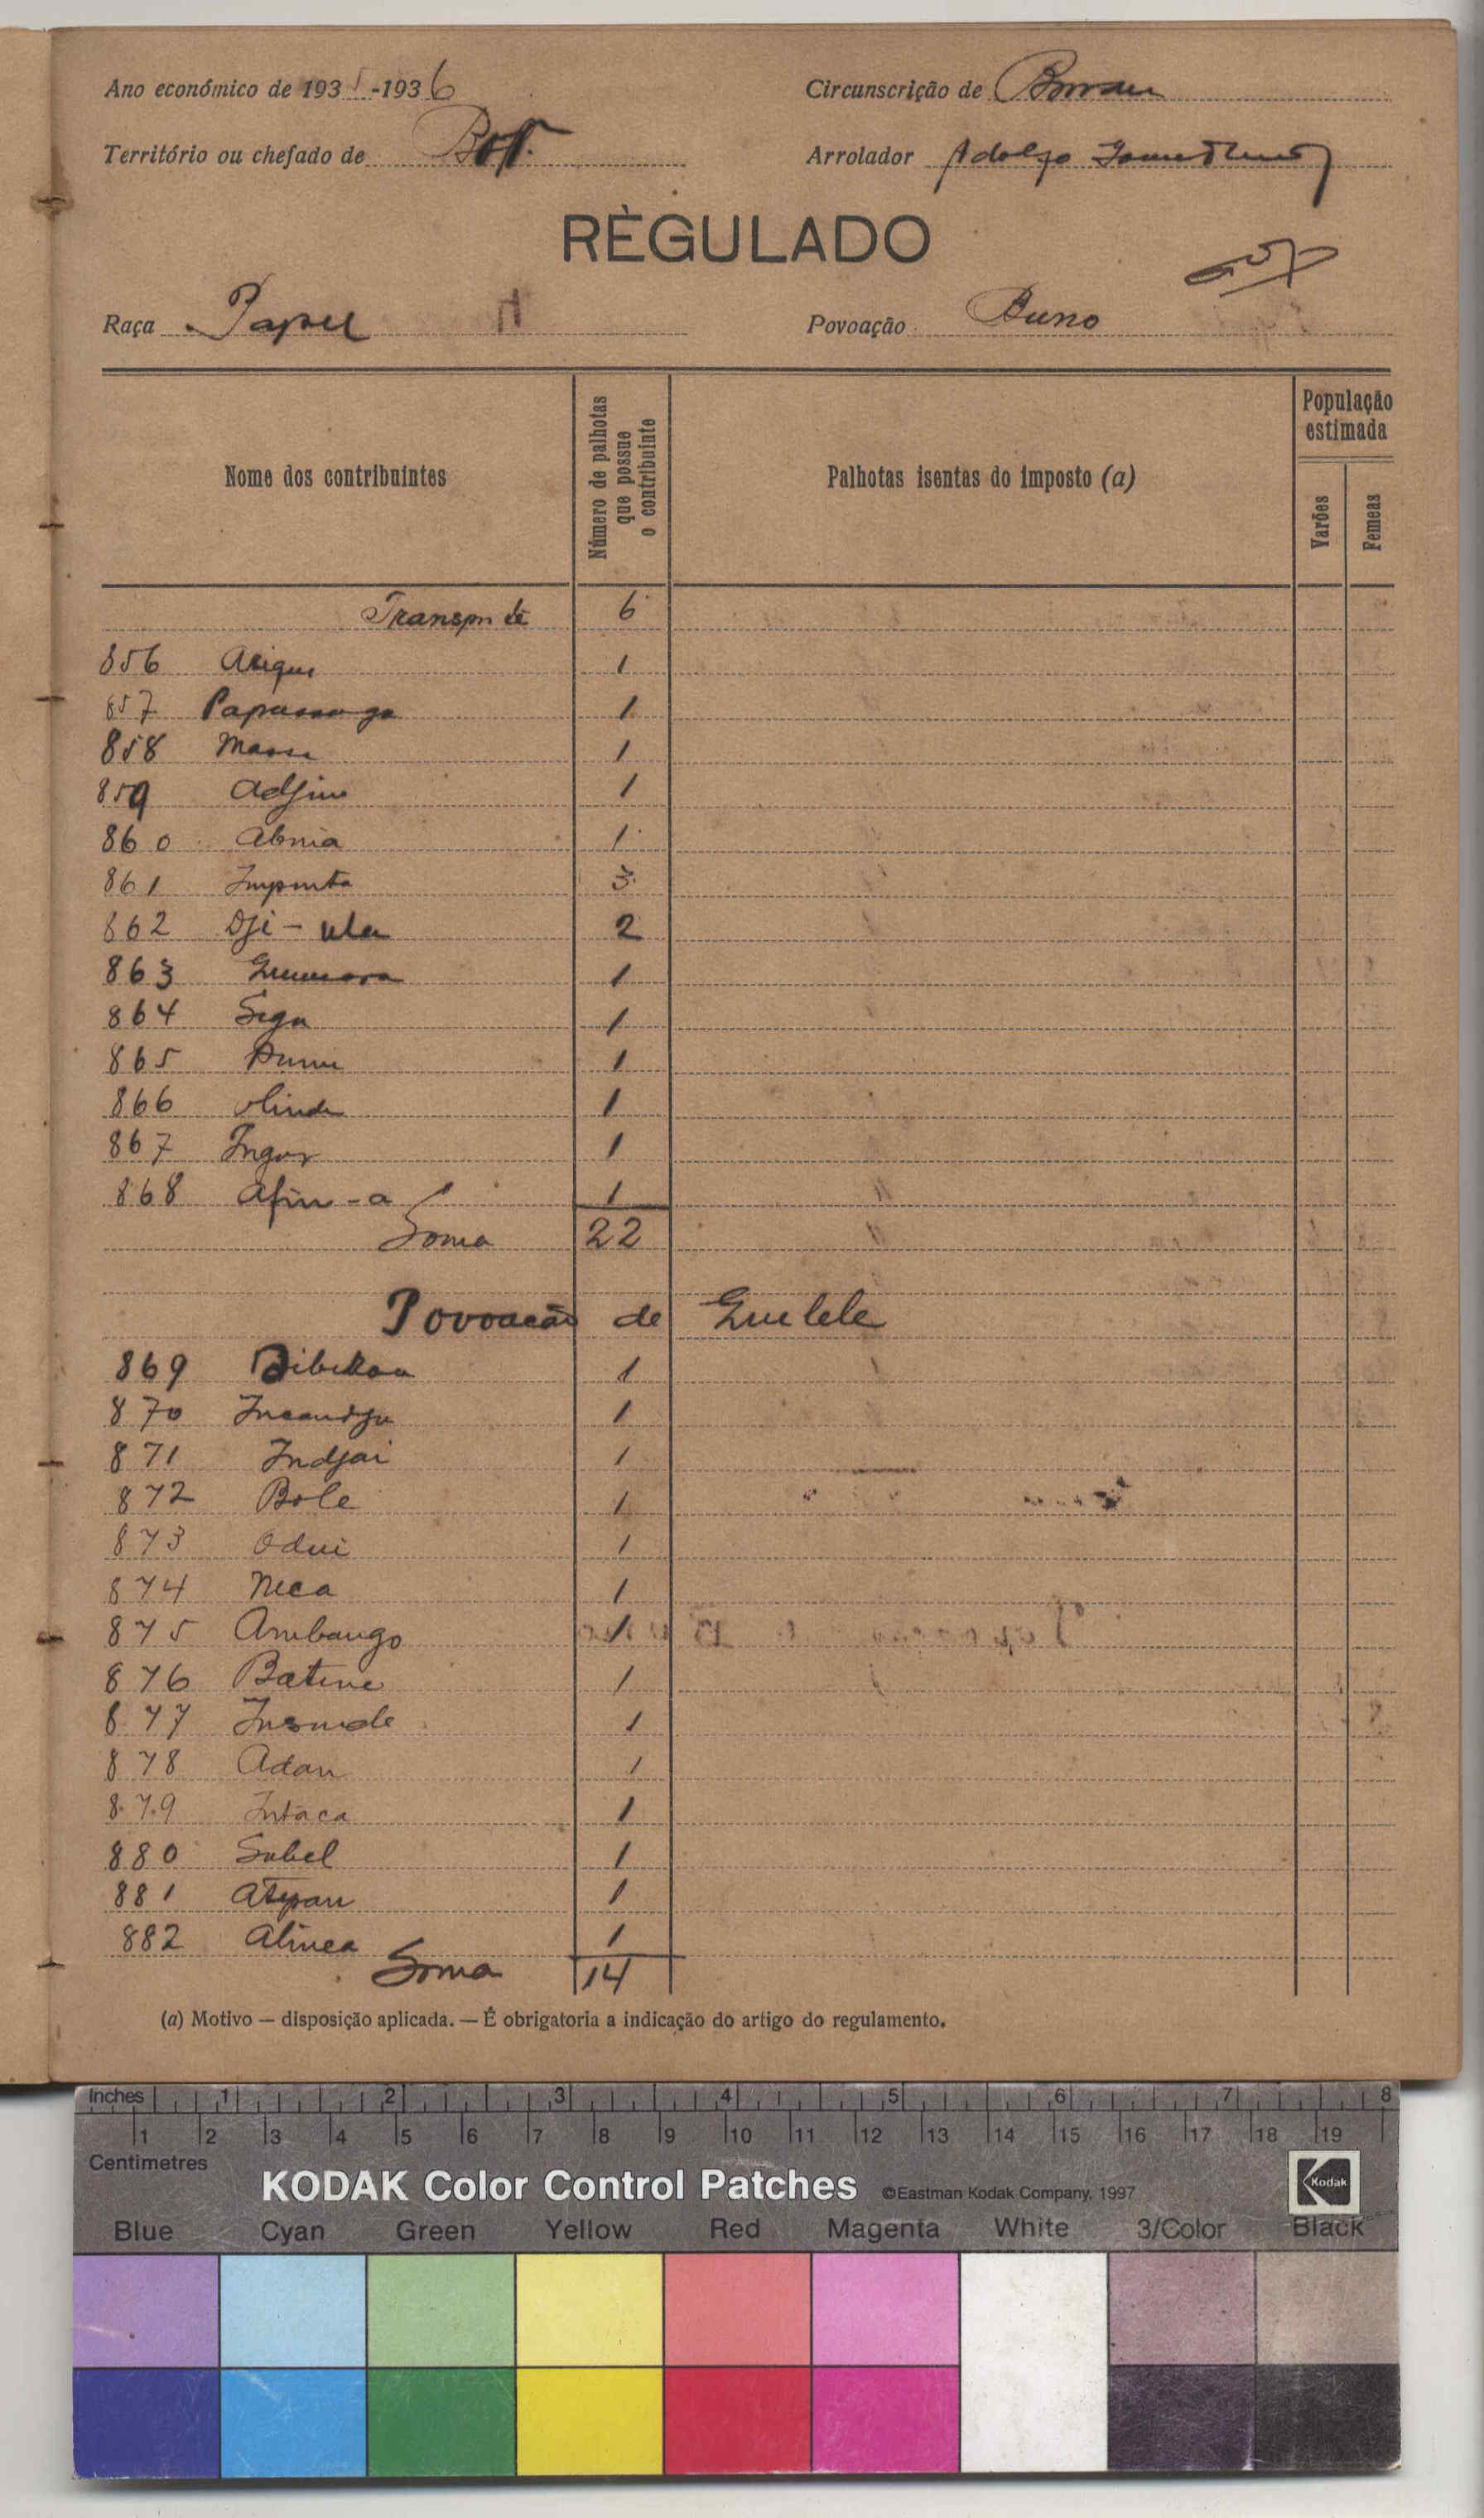 Ano económico de 1935-1936
Circunscrição de
Território ou chefado de
Arrolador Adolfo
RÈGULADO
Raça Papel
Povoação Buno
Nome dos contribuintes
Número de palhotas que possue o contribuinte
Palhotas isentas do imposto (a)
População estimada
Varões
Femeas
Transporte 6
856 1
857 1
858 1
859 1
860 Abnia 1
861 3
862 Dji - 2
863 1
864 Sega 1
865 1
866 Olinda 1
867 1
868 - a 1
Soma 22
Povoação de Quelele
869 1
870 1
871 Indjai 1
872 Bole 1
873 Odui 1
874 Neca 1
875 Ambango 1
876 Batine 1
877 1
878 Adan 1
879 Intaca 1
880 Sabel 1
881 1
882 Alinea 1
Soma 14
(a) Motivo — disposição aplicada. — É obrigatoria a indicação do artigo do regulamento.
Inches 1 2 3 4 5 6 7 8
1 2 3 4 5 6 7 8 9 10 11 12 13 14 15 16 17 18 19
Centimetres
KODAK Color Control Patches ©Eastman Kodak Company, 1997 Kodak
Blue Cyan Green Yellow Red Magenta White 3/Color Black